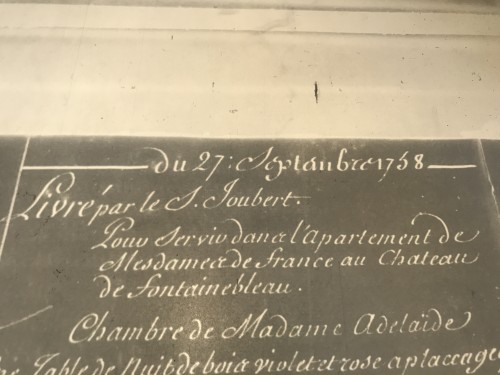 du 27: Septembre 1758
Livré par le S. Joubert.
Pour Servir dans l'Apartement de
Mesdames de France au Chateau
de Fontainebleau.
Chambre de Madame Adelaïde
Table de Nuit de bois violet et rose a placcages